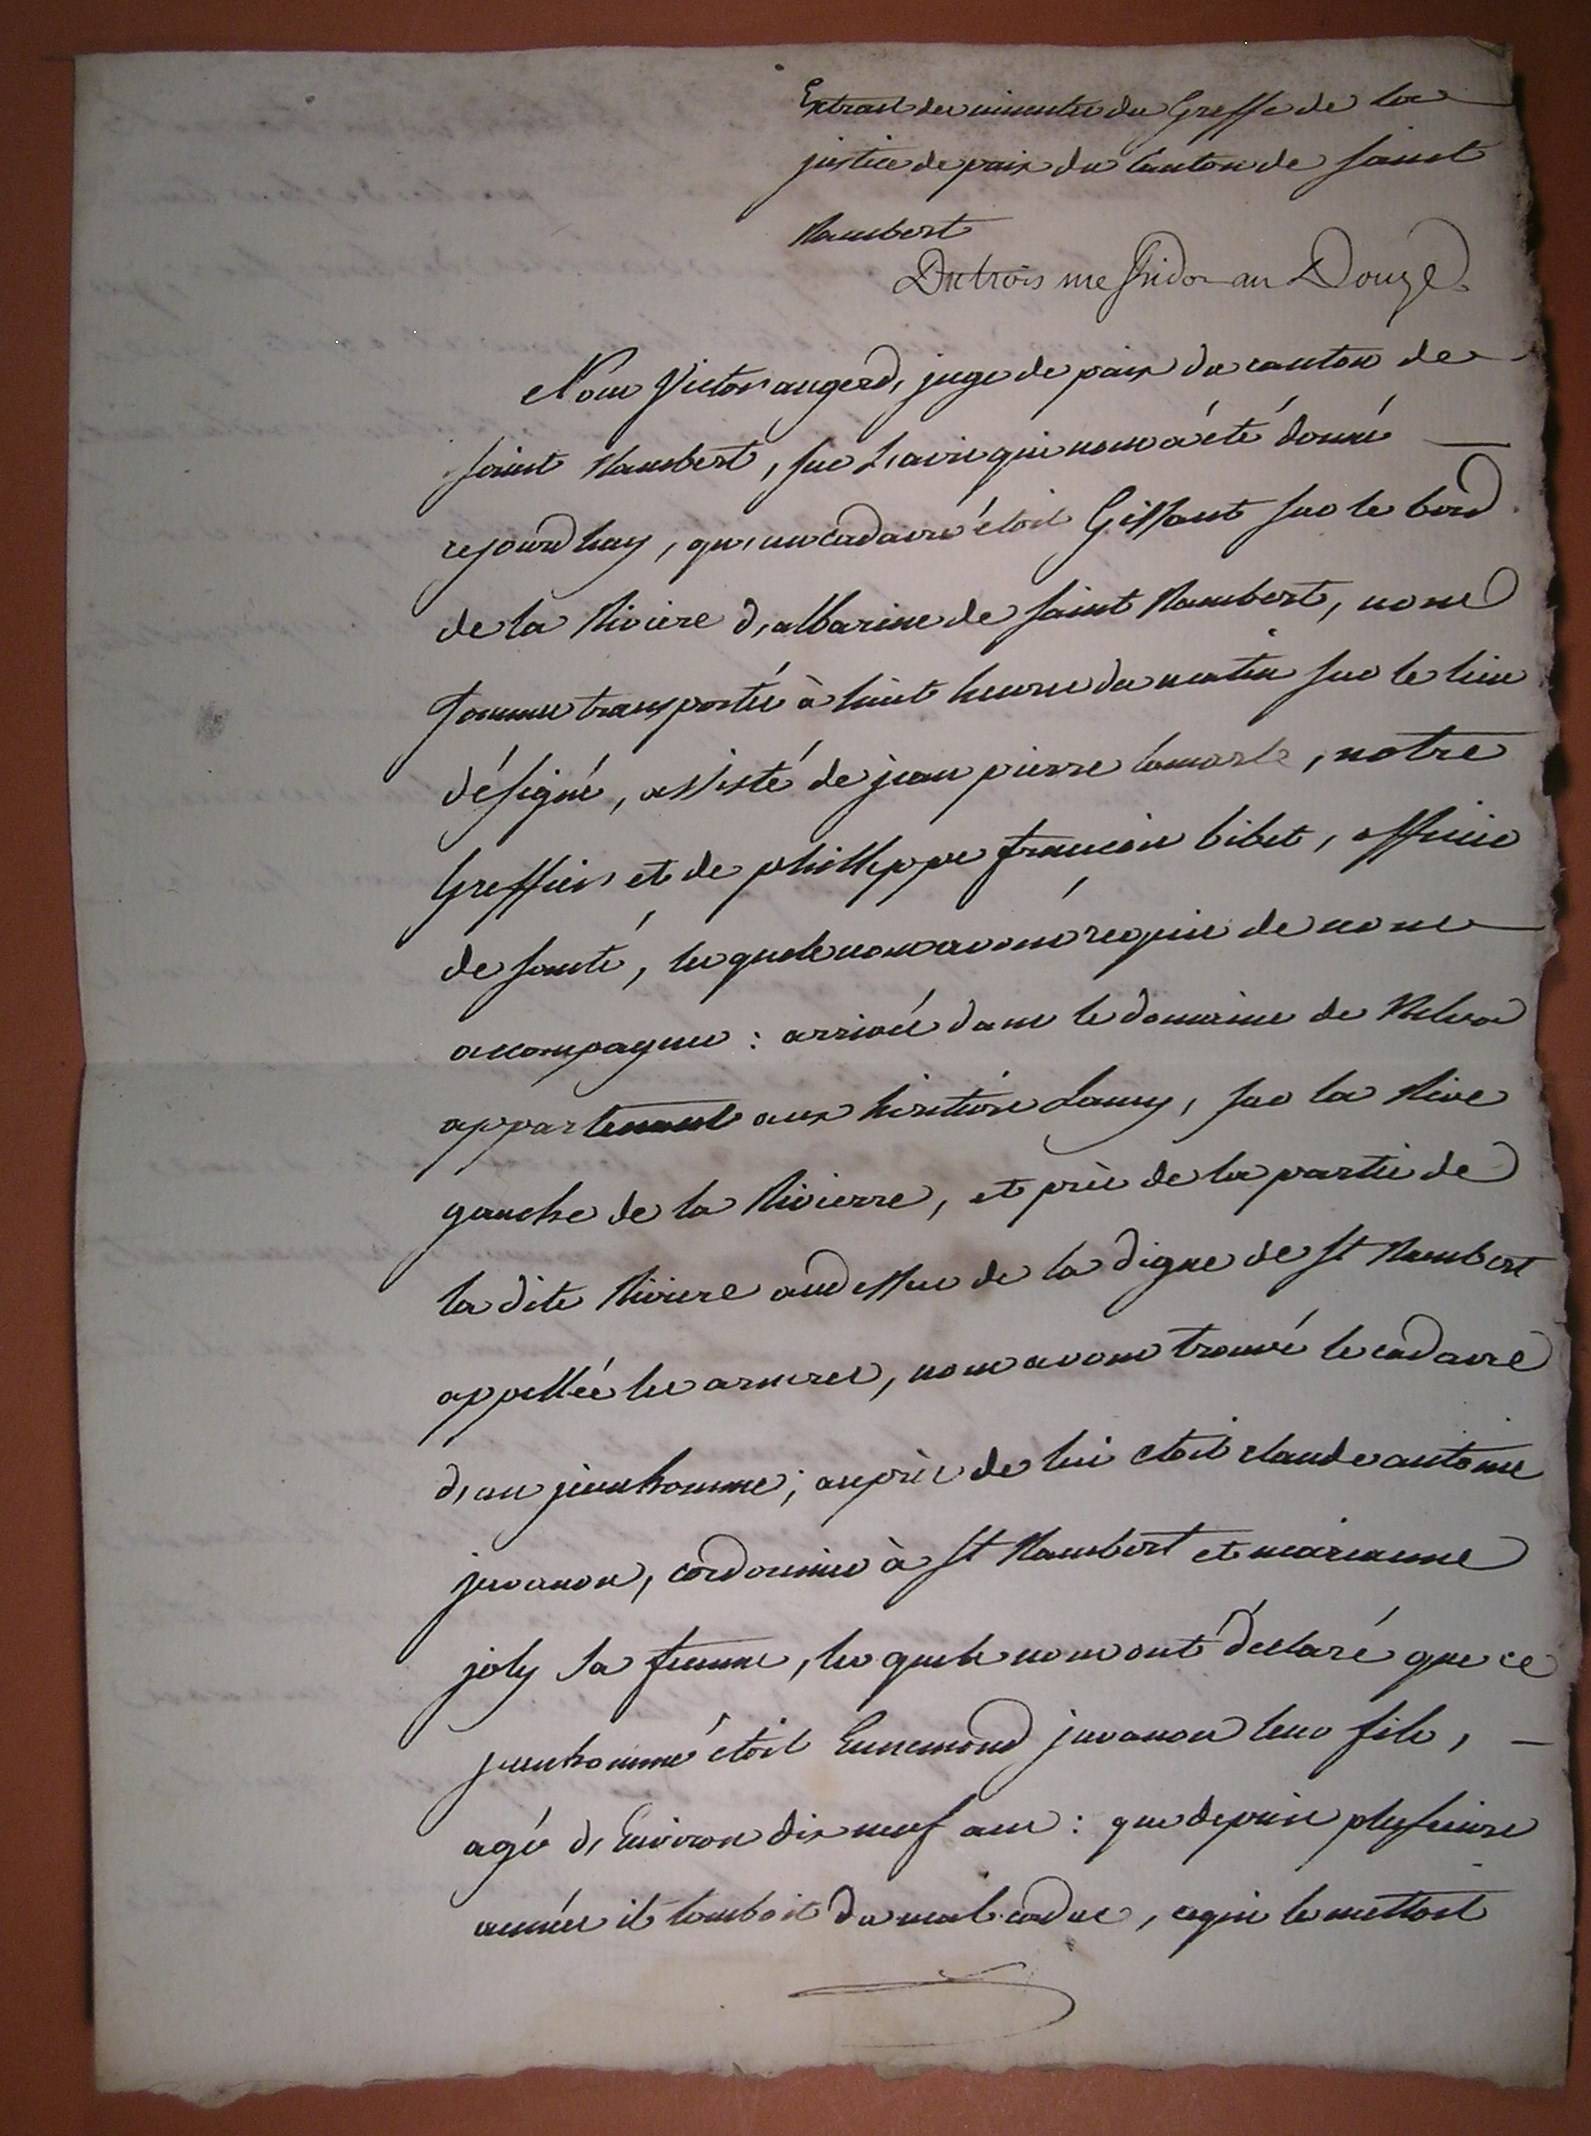 Extrait des minutes du Greffe de la
justice de paix du Canton de saint
Rambert
Du trois messidor an Douze.
Nous Victor augerd, juge de paix du canton de
saint Rambert, sur L'avis qui nous a été donné
cejourdhuy, qu'un cadavre étoit Gissant sur le bord
de la Riviere d'albarine de saint Rambert, nous
sommes transportés à huit heures du matin sur le lieu
désigné, assisté de jean pierre lamarle, notre
Greffier et de philippe françois bibet, officier
de santé, lesquels nous avons réquis de nous
accompagner : arrivés dans le domaine de
appartenant aux héritiers Lamy, sur la Rive
gauche de la Rivierre, et près de la partie de
la dite Riviere audessus de la digue de St Rambert
appellée les armeres, nous avons trouvé le cadavre
d'un jeunhomme ; auprès de lui étoit claude antoine
juvanon, cordonnier à St Rambert et marianne
joly sa femme, lesquels nous ont déclaré que ce
jeunhomme étoit Ennemond juvanon leur fils,
agé d'Environ dix neuf ans : que depuis plusieurs
années il tomboit du mal caduc, ce qui le mettoit